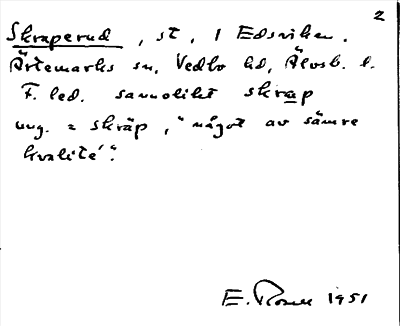 2
Skraperud, st, 1 Edsviken.
Ärtemarks sn, Vedbo hd, Älvsb. l.
F. led. sannolikt skrap
ung. = skräp, "något av sämre
kvalité".
E. Rosell 1951